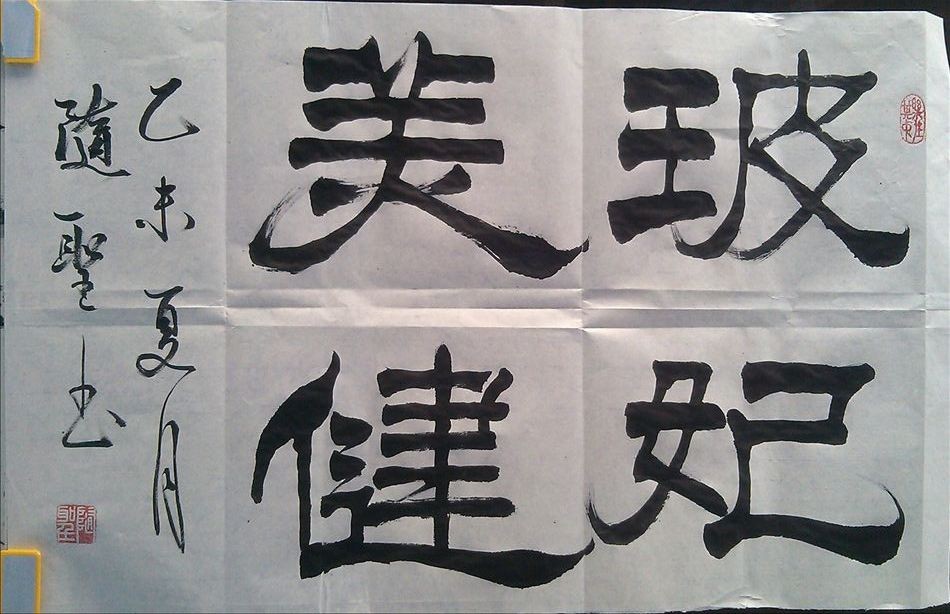 玻妃
美健
乙未夏月
隨一聖书